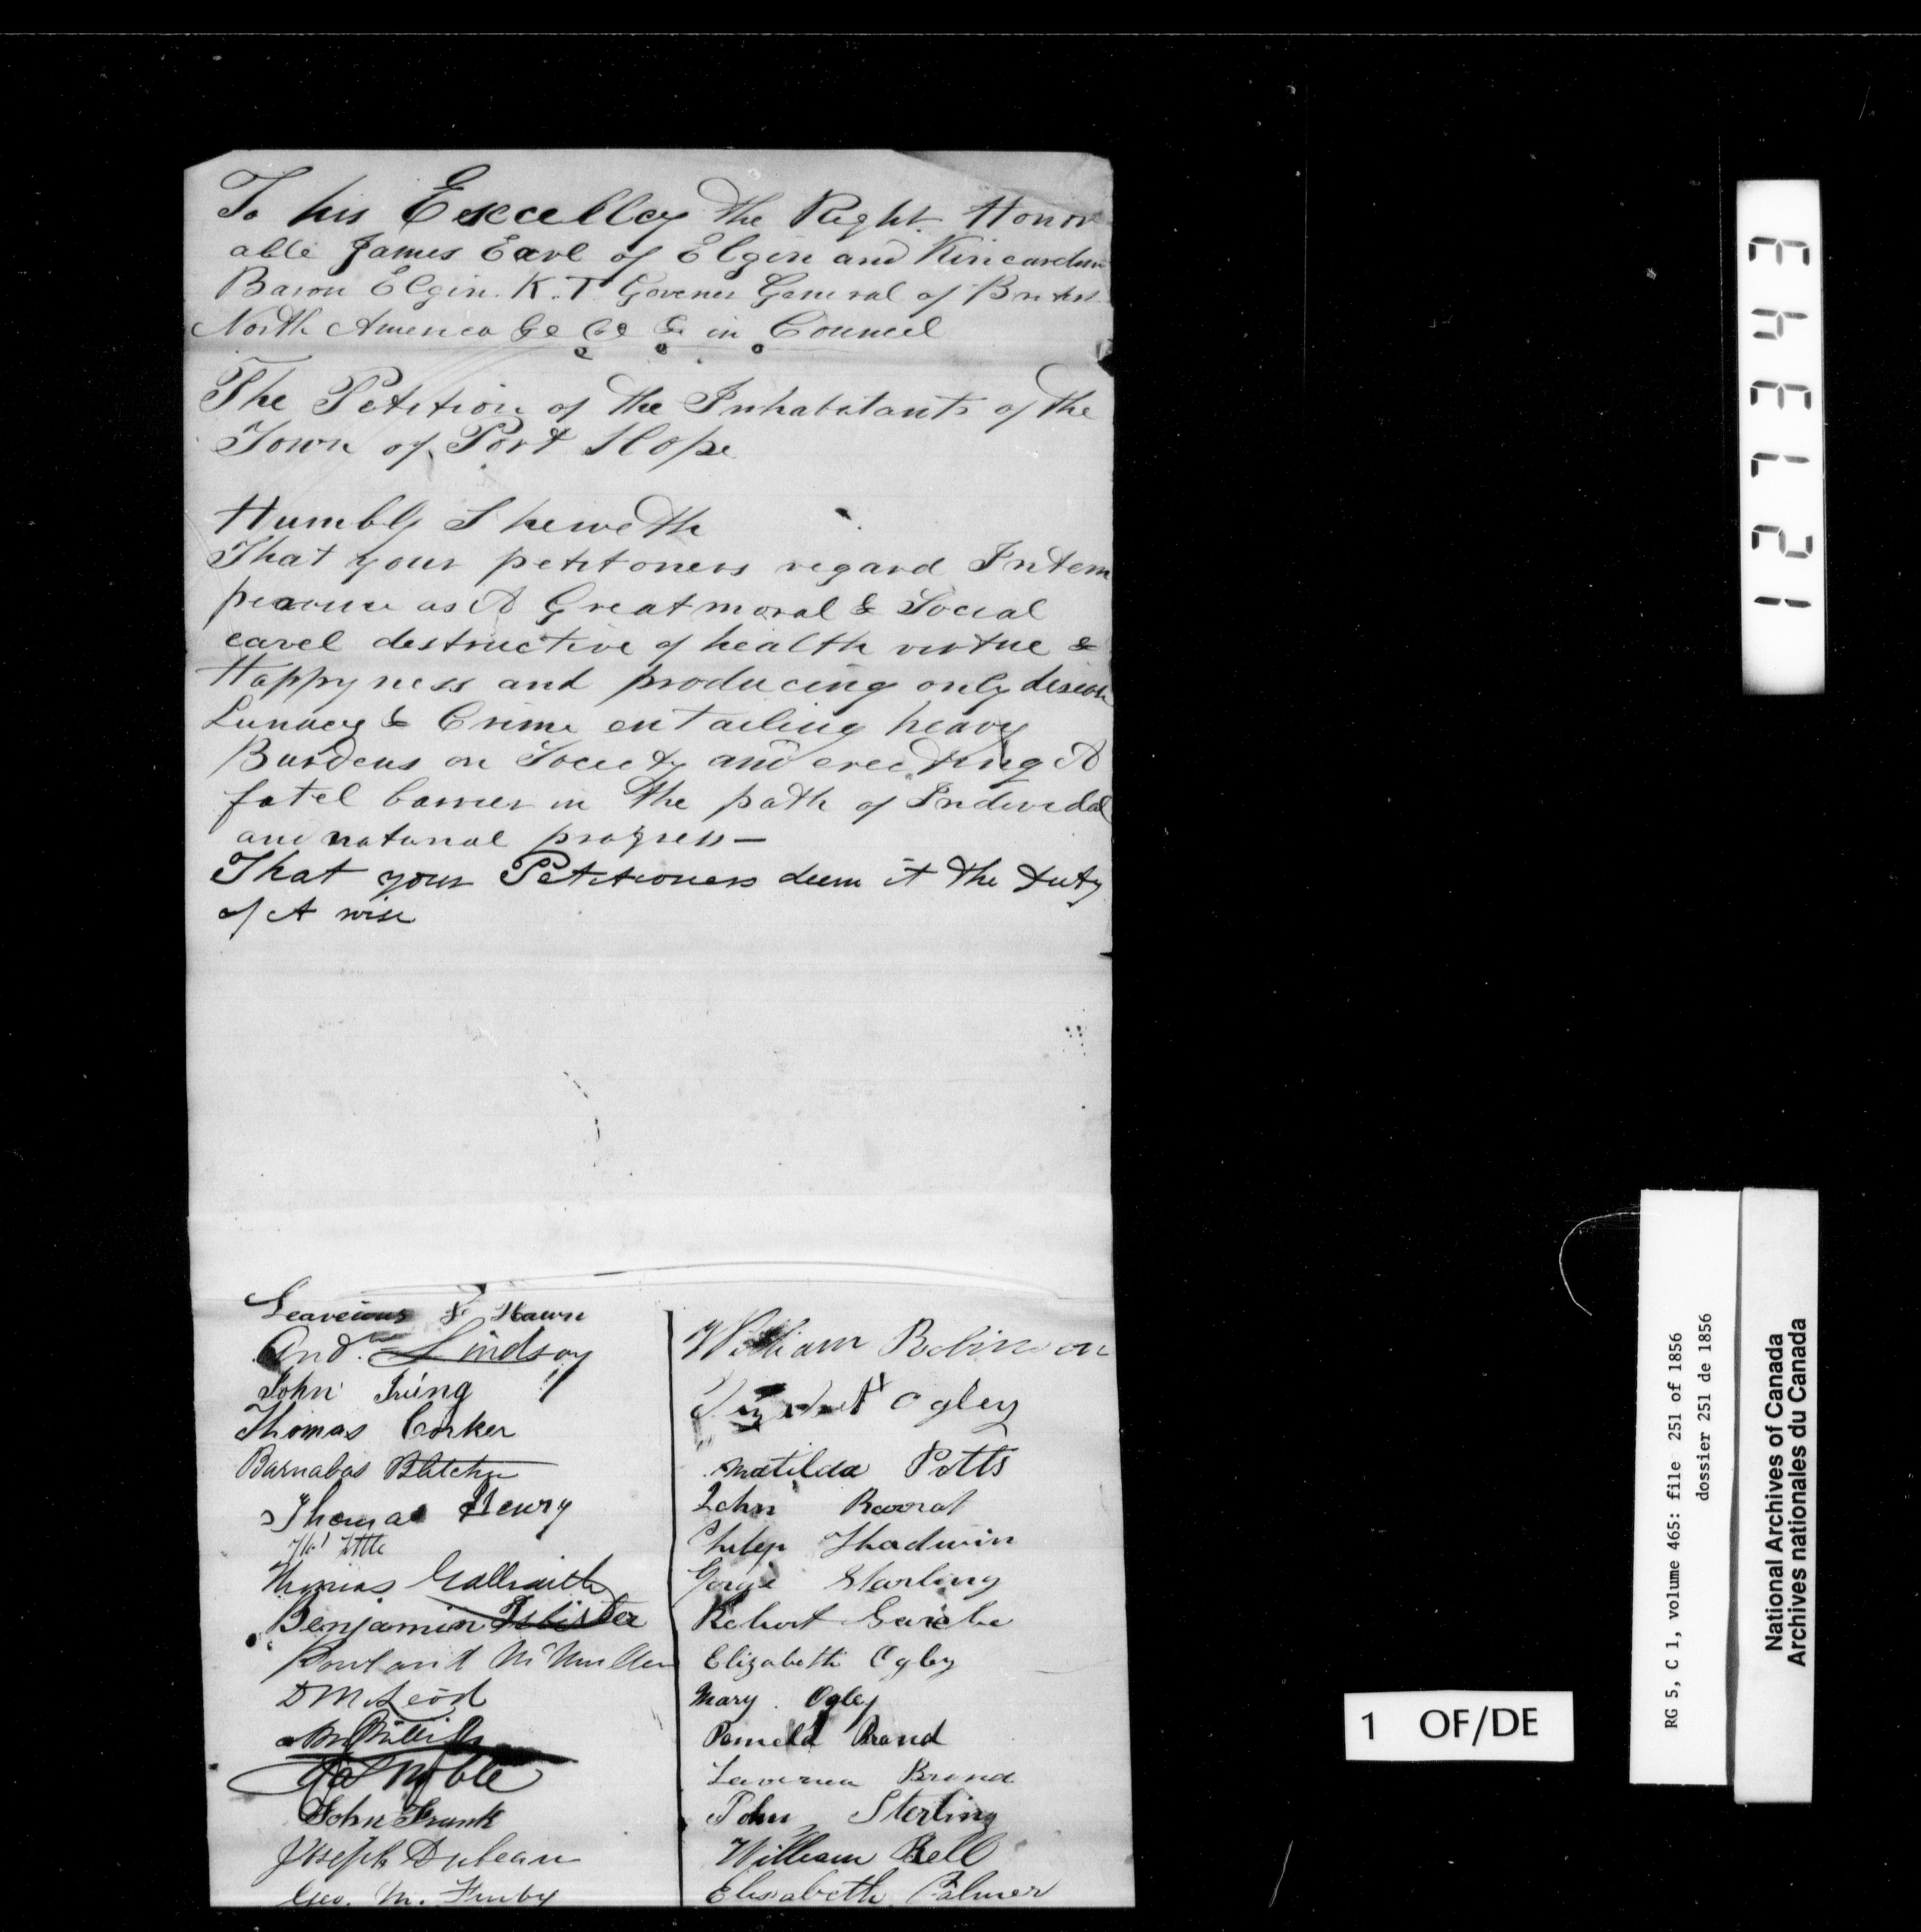 To his Excellcy the Right Honor
able James Earl of Elgin and Kincardin
Baron Elgin. K. T. Govener General of British
North America &c &c &c in Council
The Petition of the Inhabitants of the
Town of Port Hope
Humbly Sheweth
That your petitoners regard Intem
perance as A Great moral & Social
eavel destructive of health virtue &
Happyness and producing only disease
Lunacy & Crime entailing heavy
Burdens on Society and erecting A
fatel barrier in the path of Individal
and natural progress—
That your Petitioners deem it the duty
of A wise
Hawn
And. Lindsay
John Iring
Thomas Corker
Barnabas
Thomas Henry
Little
Thomas Galbraith
Benjamin
Rowland McMullen
D McLeod
Noble
John Frank
Joseph Dubeau
Geo. M. Furby
William Robinson
Ogley
Matilda Potts
John Barrat
Philip Shadwin
Gorge Starling
Robert
Elizabeth Ogley
Mary Ogley
Pamela Brand
Brand
John Sterling
William Bell
Elisabeth Palmer
1 2 1 7 3 4 3
1 OF/DE
RG 5, C 1, volume 465: file 251 of 1856
dossier 251 de 1856
National Archives of Canada
Archives nationales du Canada